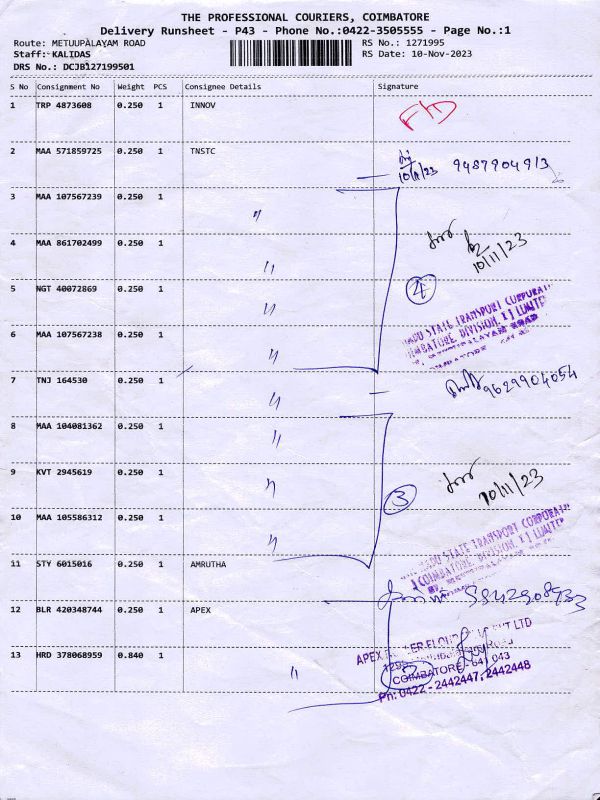 THE PROFESSIONAL COURIERS, COIMBATORE
Delivery Runsheet - P43 - Phone No.:0422-3505555 - Page No.:1
Route: METUUPALAYAM ROAD
RS No.: 1271995
Staff: KALIDAS
RS Date: 10-Nov-2023
DRS No.: DCJB127199501
S No Consignment No Weight PCS Consignee Details Signature
1 TRP 4873608 0.250 1 INNOV
2 MAA 571859725 0.250 1 TNSTC
10/11/23 9487904913
3 MAA 107567239 0.250 1 "
4 MAA 861702499 0.250 1 "
10/11/23
5 NGT 40072869 0.250 1 "
4
STATE TRANSPORT CORPORATI
DIVISION, I ] LIMITE
6 MAA 107567238 0.250 1 "
7 TNJ 164530 0.250 1 "
9629904054
8 MAA 104081362 0.250 1 "
9 KVT 2945619 0.250 1 "
3
10/11/23
10 MAA 105586312 0.250 1 "
STATE TRANSPORT CORPORA
COIMBATORE, DIVISION, I ] LIMITE
11 STY 6015016 0.250 1 AMRUTHA
12 BLR 420348744 0.250 1 APEX
APEX PVT LTD
13 HRD 378068959 0.840 1 "
COIMBATORE - 641 043
Ph: 0422 - 2442447, 2442448